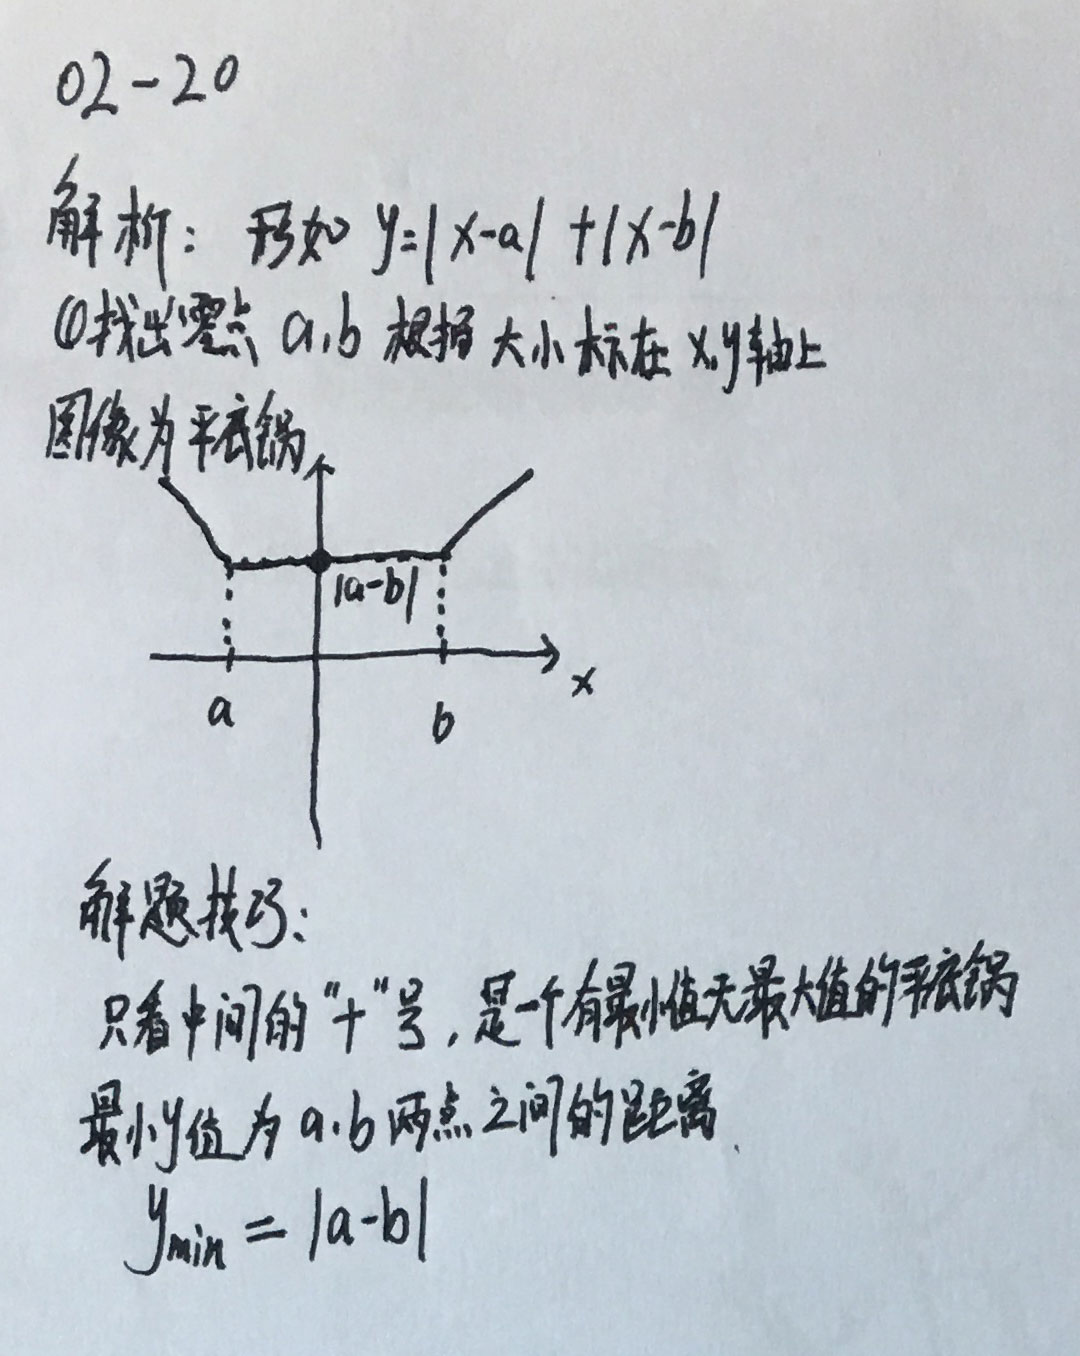 02-20
解析：形如 y=|x-a|+|x-b|
①找出零点 a,b 根据大小标在 x,y轴上
图像为平底锅
|a-b|
x
a
b
解题技巧：
只看中间的"+"号，是一个有最小值无最大值的平底锅
最小y值为 a.b 两点之间的距离.
ymin = |a-b|